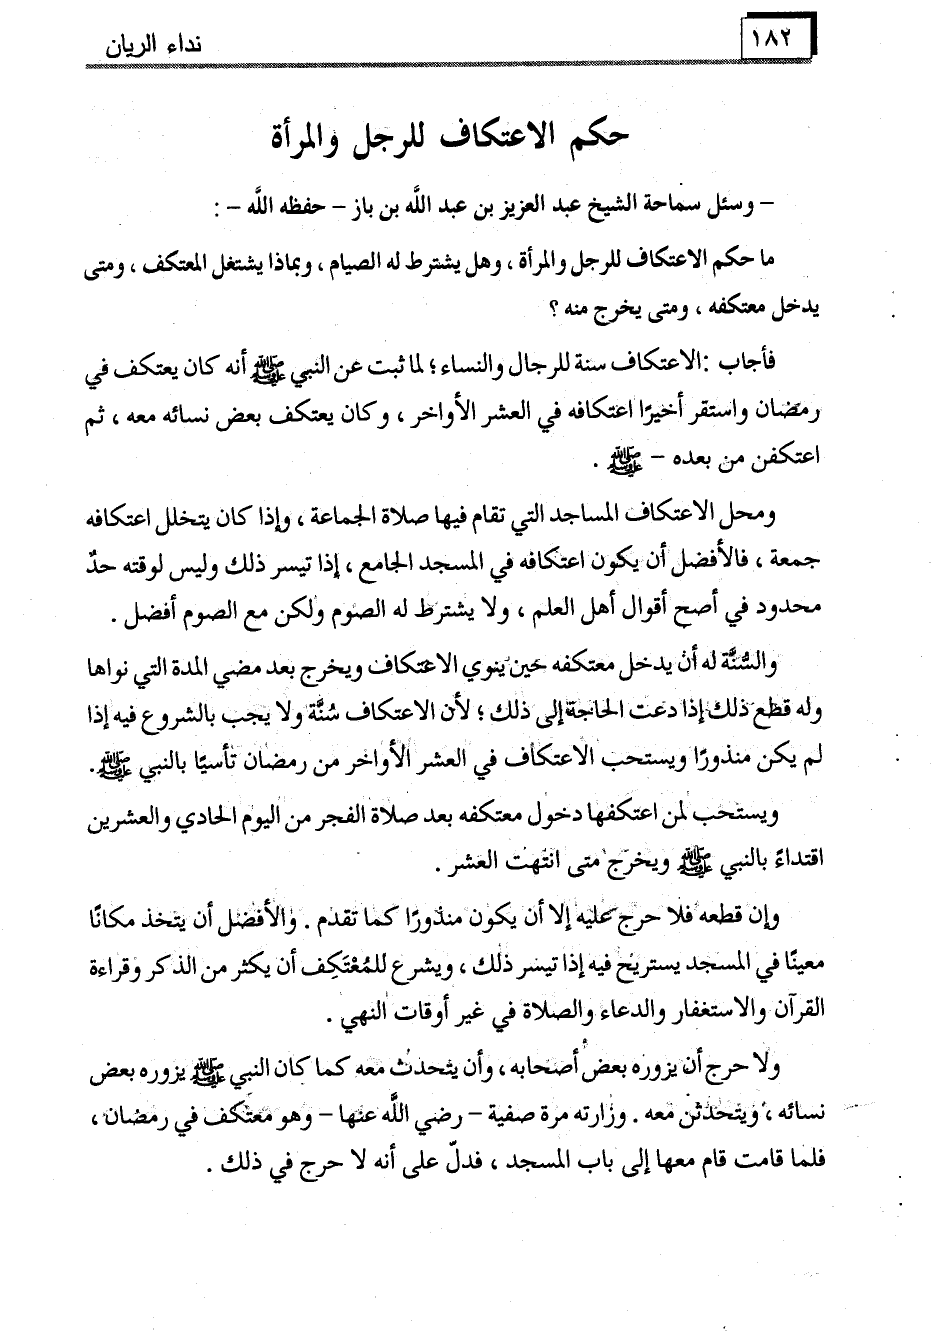 ١٨٢
نداء الريان
حكم الاعتكاف للرجل والمرأة
– وسئل سماحة الشيخ عبد العزيز بن عبد اللَّه بن باز – حفظه اللَّه – :
ما حكم الاعتكاف للرجل والمرأة ، وهل يشترط له الصيام ، وبماذا يشتغل المعتكف ، ومتى
يدخل معتكفه ، ومتى يخرج منه ؟
فأجاب : الاعتكاف سنة للرجال والنساء ؛ لما ثبت عن النبي ﷺ أنه كان يعتكف في
رمضان واستقر أخيرًا اعتكافه في العشر الأواخر ، وكان يعتكف بعض نسائه معه ، ثم
اعتكفن من بعده – ﷺ .
ومحل الاعتكاف المساجد التي تقام فيها صلاة الجماعة ، وإذا كان يتخلل اعتكافه
جمعة ، فالأفضل أن يكون اعتكافه في المسجد الجامع ، إذا تيسر ذلك وليس لوقته حدٌ
محدود في أصح أقوال أهل العلم ، ولا يشترط له الصوم ولكن مع الصوم أفضل .
والسُّنَّة له أن يدخل معتكفه حين ينوي الاعتكاف ويخرج بعد مضي المدة التي نواها
وله قطع ذلك إذا دعت الحاجة إلى ذلك ؛ لأن الاعتكاف سُنَّة ولا يجب بالشروع فيه إذا
لم يكن منذورًا ويستحب الاعتكاف في العشر الأواخر من رمضان تأسيًا بالنبي ﷺ .
ويستحب لمن اعتكفها دخول معتكفه بعد صلاة الفجر من اليوم الحادي والعشرين
اقتداءً بالنبي ﷺ ويخرج متى انتهت العشر .
وإن قطعه فلا حرج عليه إلا أن يكون منذورًا كما تقدم . والأفضل أن يتخذ مكانًا
معينًا في المسجد يستريح فيه إذا تيسر ذلك ، ويشرع للمُعْتَكِف أن يكثر من الذكر وقراءة
القرآن والاستغفار والدعاء والصلاة في غير أوقات النهي .
ولا حرج أن يزوره بعض أصحابه ، وأن يتحدث معه كما كان النبي ﷺ يزوره بعض
نسائه ، ويتحدثن معه . وزارته مرة صفية – رضي اللَّه عنها – وهو معتكف في رمضان ،
فلما قامت قام معها إلى باب المسجد ، فدلّ على أنه لا حرج في ذلك .